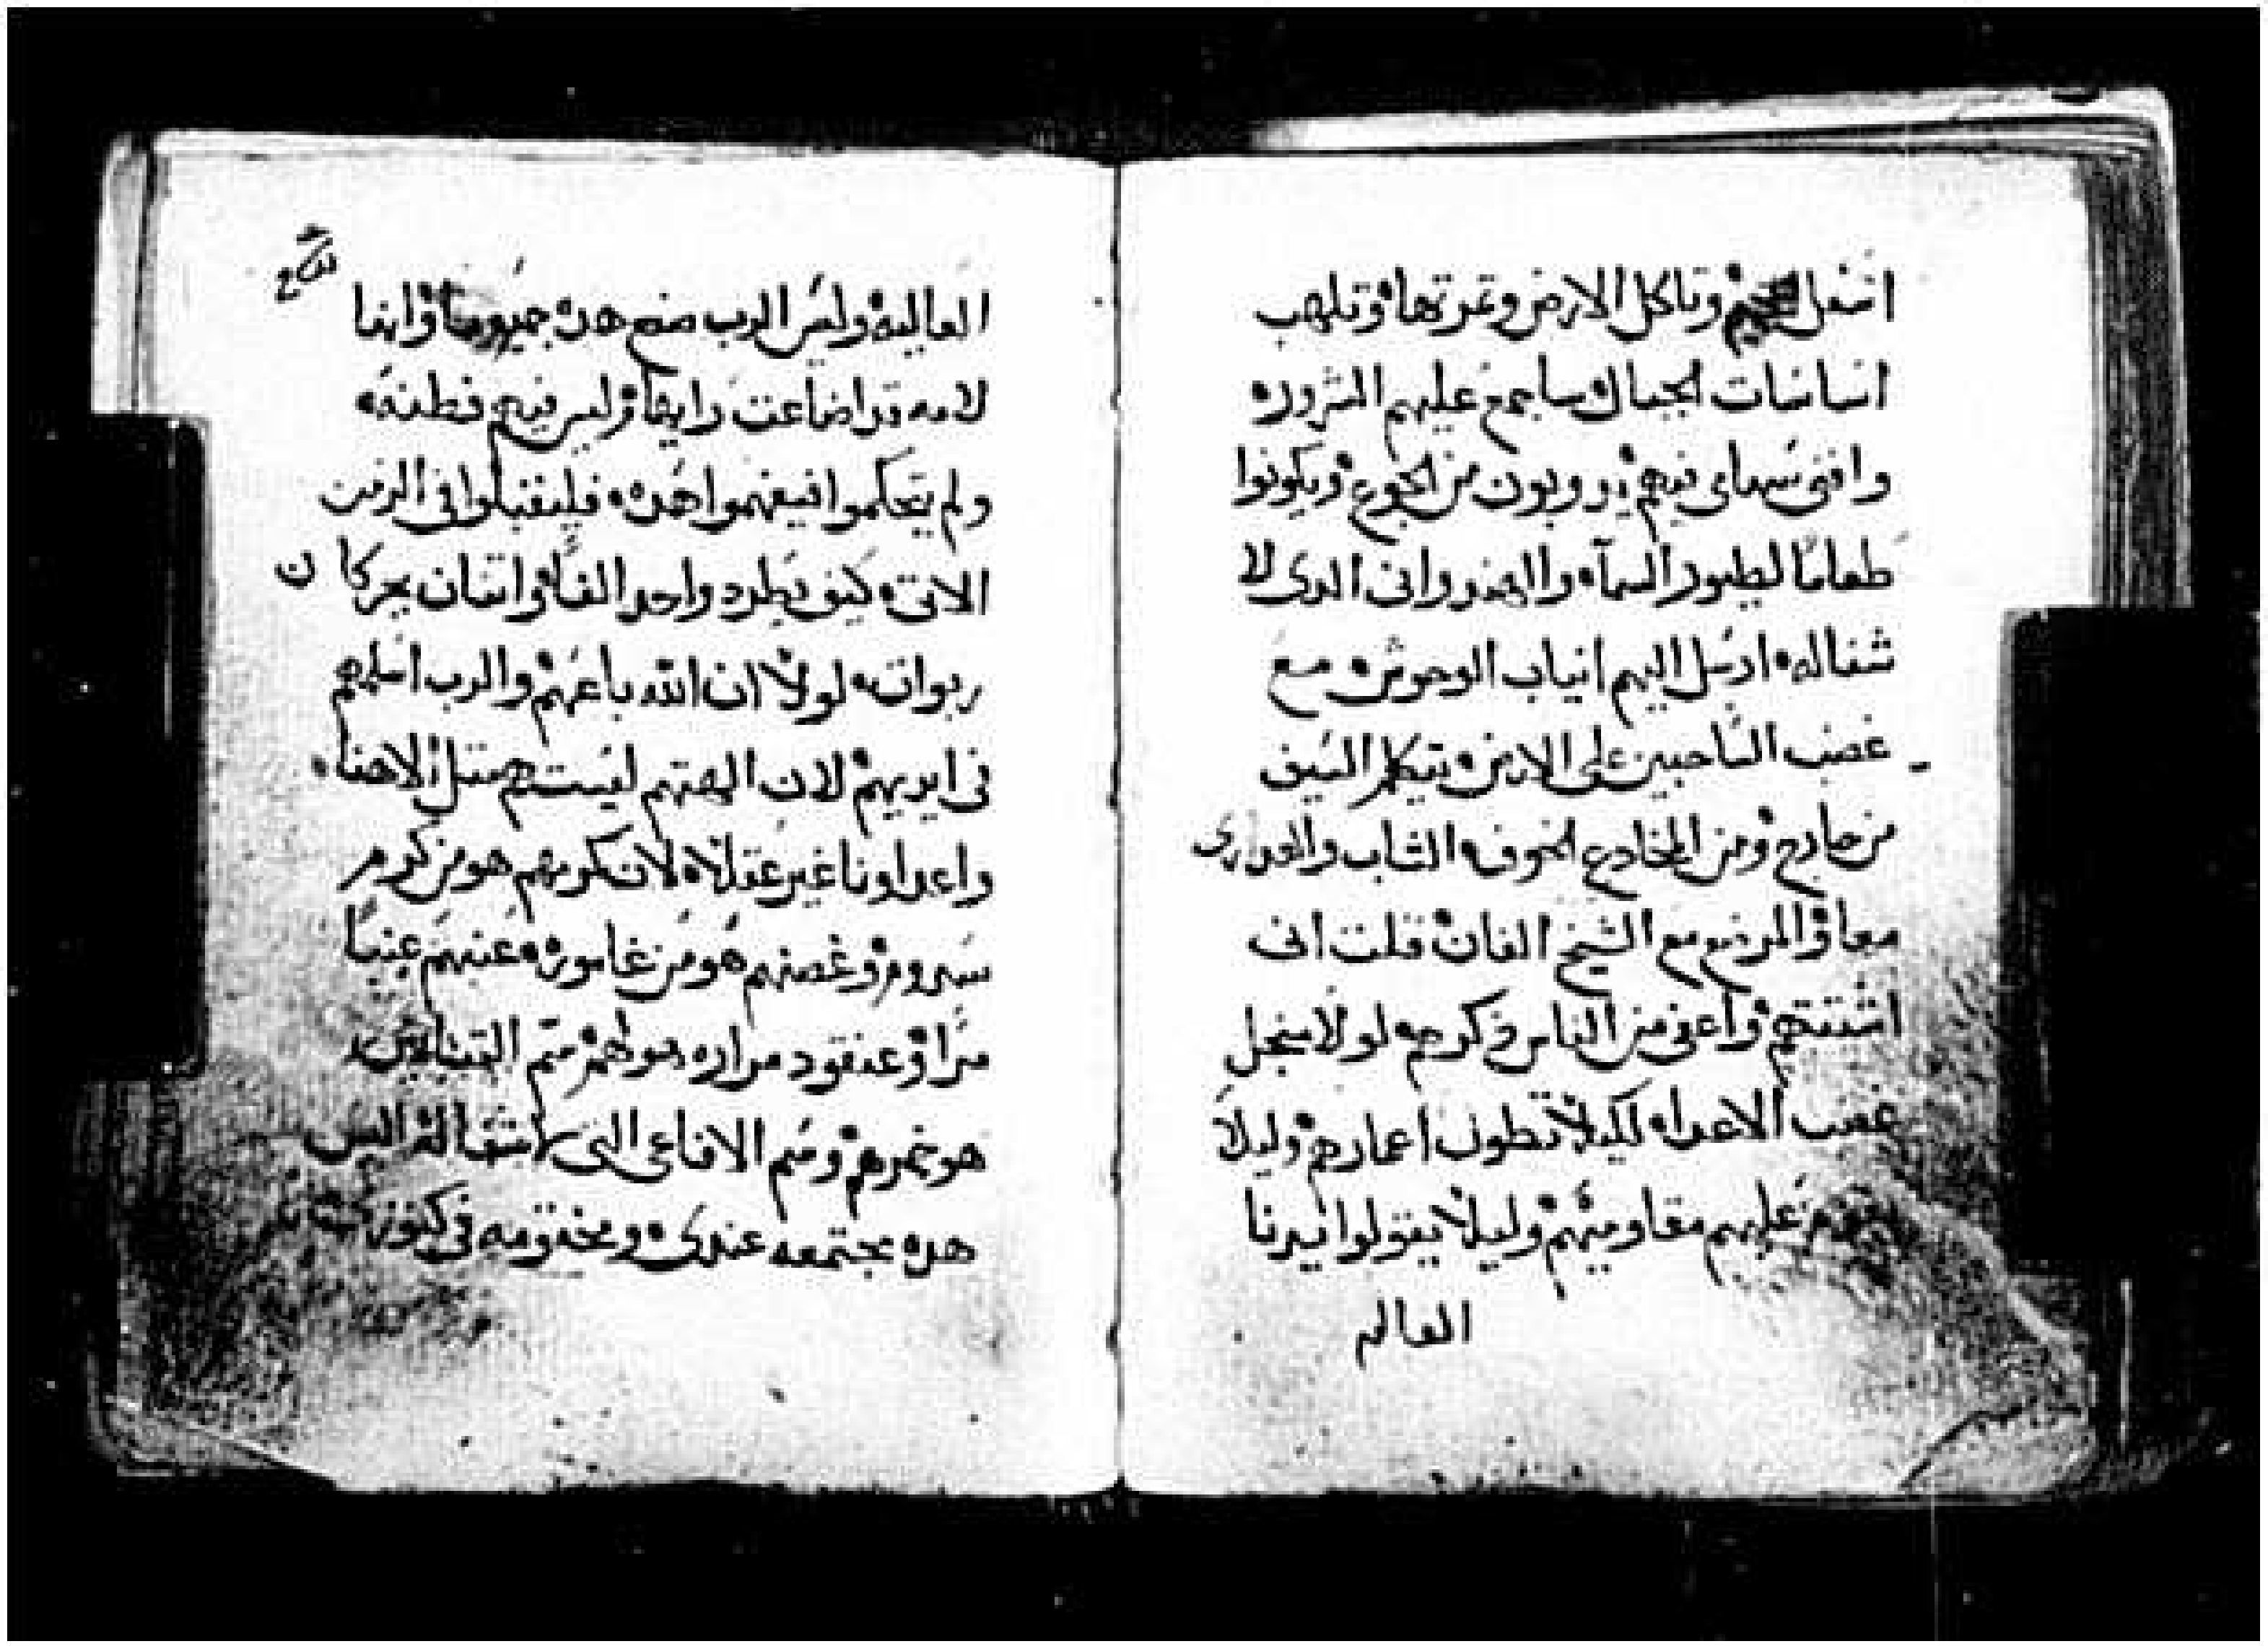 اسفل الجحيم وتاكل الارض وثمرتها وتلهب
اساسات الجبال ساجمع عليهم الشرور
وافنى سهامى فيهم يدوبون من الجوع ويكونوا
طعامًا لطيور السمآء والهندوانى الدى لا
شفا له ارسل اليهم انياب الوحوش مع
غضب الساحبين على الارض يتكلهم السيف
من خارج ومن المخادع الخوف الشاب والعدارى
معا والمرضع مع الشيخ الفان قلت انى
اشتتهم واعنى من الناس ذكرهم لولا سنجل
غضب الاعداء لكيلا تطول اعمارهم وليلا
عليهم مقاوميهم وليلا يقولوا يدنا
العاليه
العاليه وليس الرب صنع هده جميعها وانها
لامه قد اضاعت رايها وليس فيهم فطنه
ولم يتحكموا فيفهموا هده فليقبلوا فى الزمن
الاتى كيف يطرد واحد الفًا واتنان يحركان
ربوات لولا ان الله باعهم والرب اسلمهم
فى ايديهم لان الهتهم ليست هم متل الاهنا
واعداونا غير عقلاء لان كرمهم هو من كرم
سدوم وغصنهم هو من غاموره عنبهم عنبًا
مرا وعنقود مراره هو لهم سم التنانين
هو خمرهم وسم الافاعى التى لا شفا له اليس
هده مجتمعه عندى ومختومه فى كنوزى